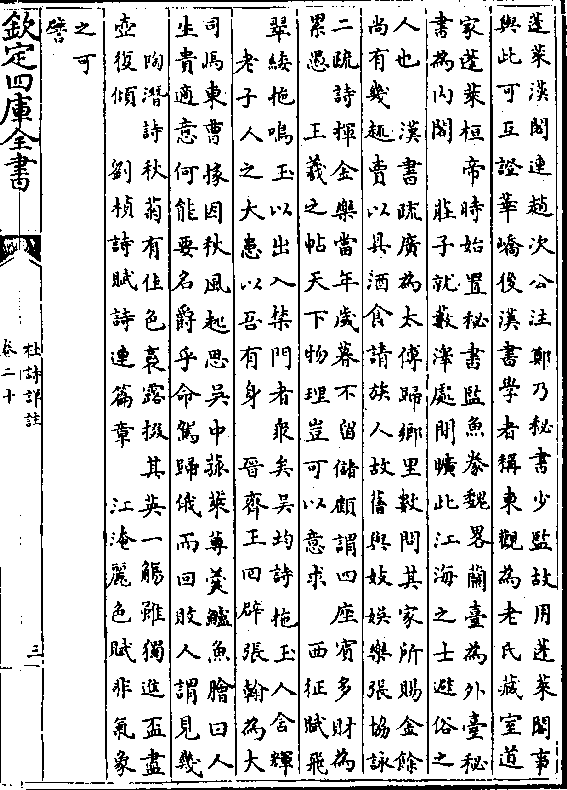 蓬萊漢閣連趙次公注鄭乃秘書少監故用蓬萊閣事
與此可互證華嶠後漢書學者稱東觀為老氏藏室道
家蓬萊桓帝時始置秘書監魚豢魏畧蘭臺為外臺秘
書為内閣　莊子就藪澤處閒曠此江海之士避俗之
人也　漢書疏廣為太傅歸鄉里數問其家所賜金餘
尚有幾趣賣以具酒食請族人故舊與娛樂張協詠
二疏詩揮金樂當年歲暮不留儲顧謂四座賓多財為
累愚　王羲之帖天下物理豈可以意求　西征賦飛
翠緌拖鳴玉以出入禁門者衆矣吳均詩拖玉人含輝
老子人之大患以吾有身　晉齊王冏辟張翰為大
司馬東曹掾因秋風起思吳中菰菜蓴羮鱸魚膾曰人
生貴適意何能要名爵乎命駕歸俄而冏敗人謂見幾
陶潛詩秋菊有佳色裛露掇其英一觴雖獨進盃盡
壺復傾　劉楨詩賦詩連篇章　江淹麗色賦非氣象
之可
譬
欽定四庫全書
杜詩詳註
卷二十
三